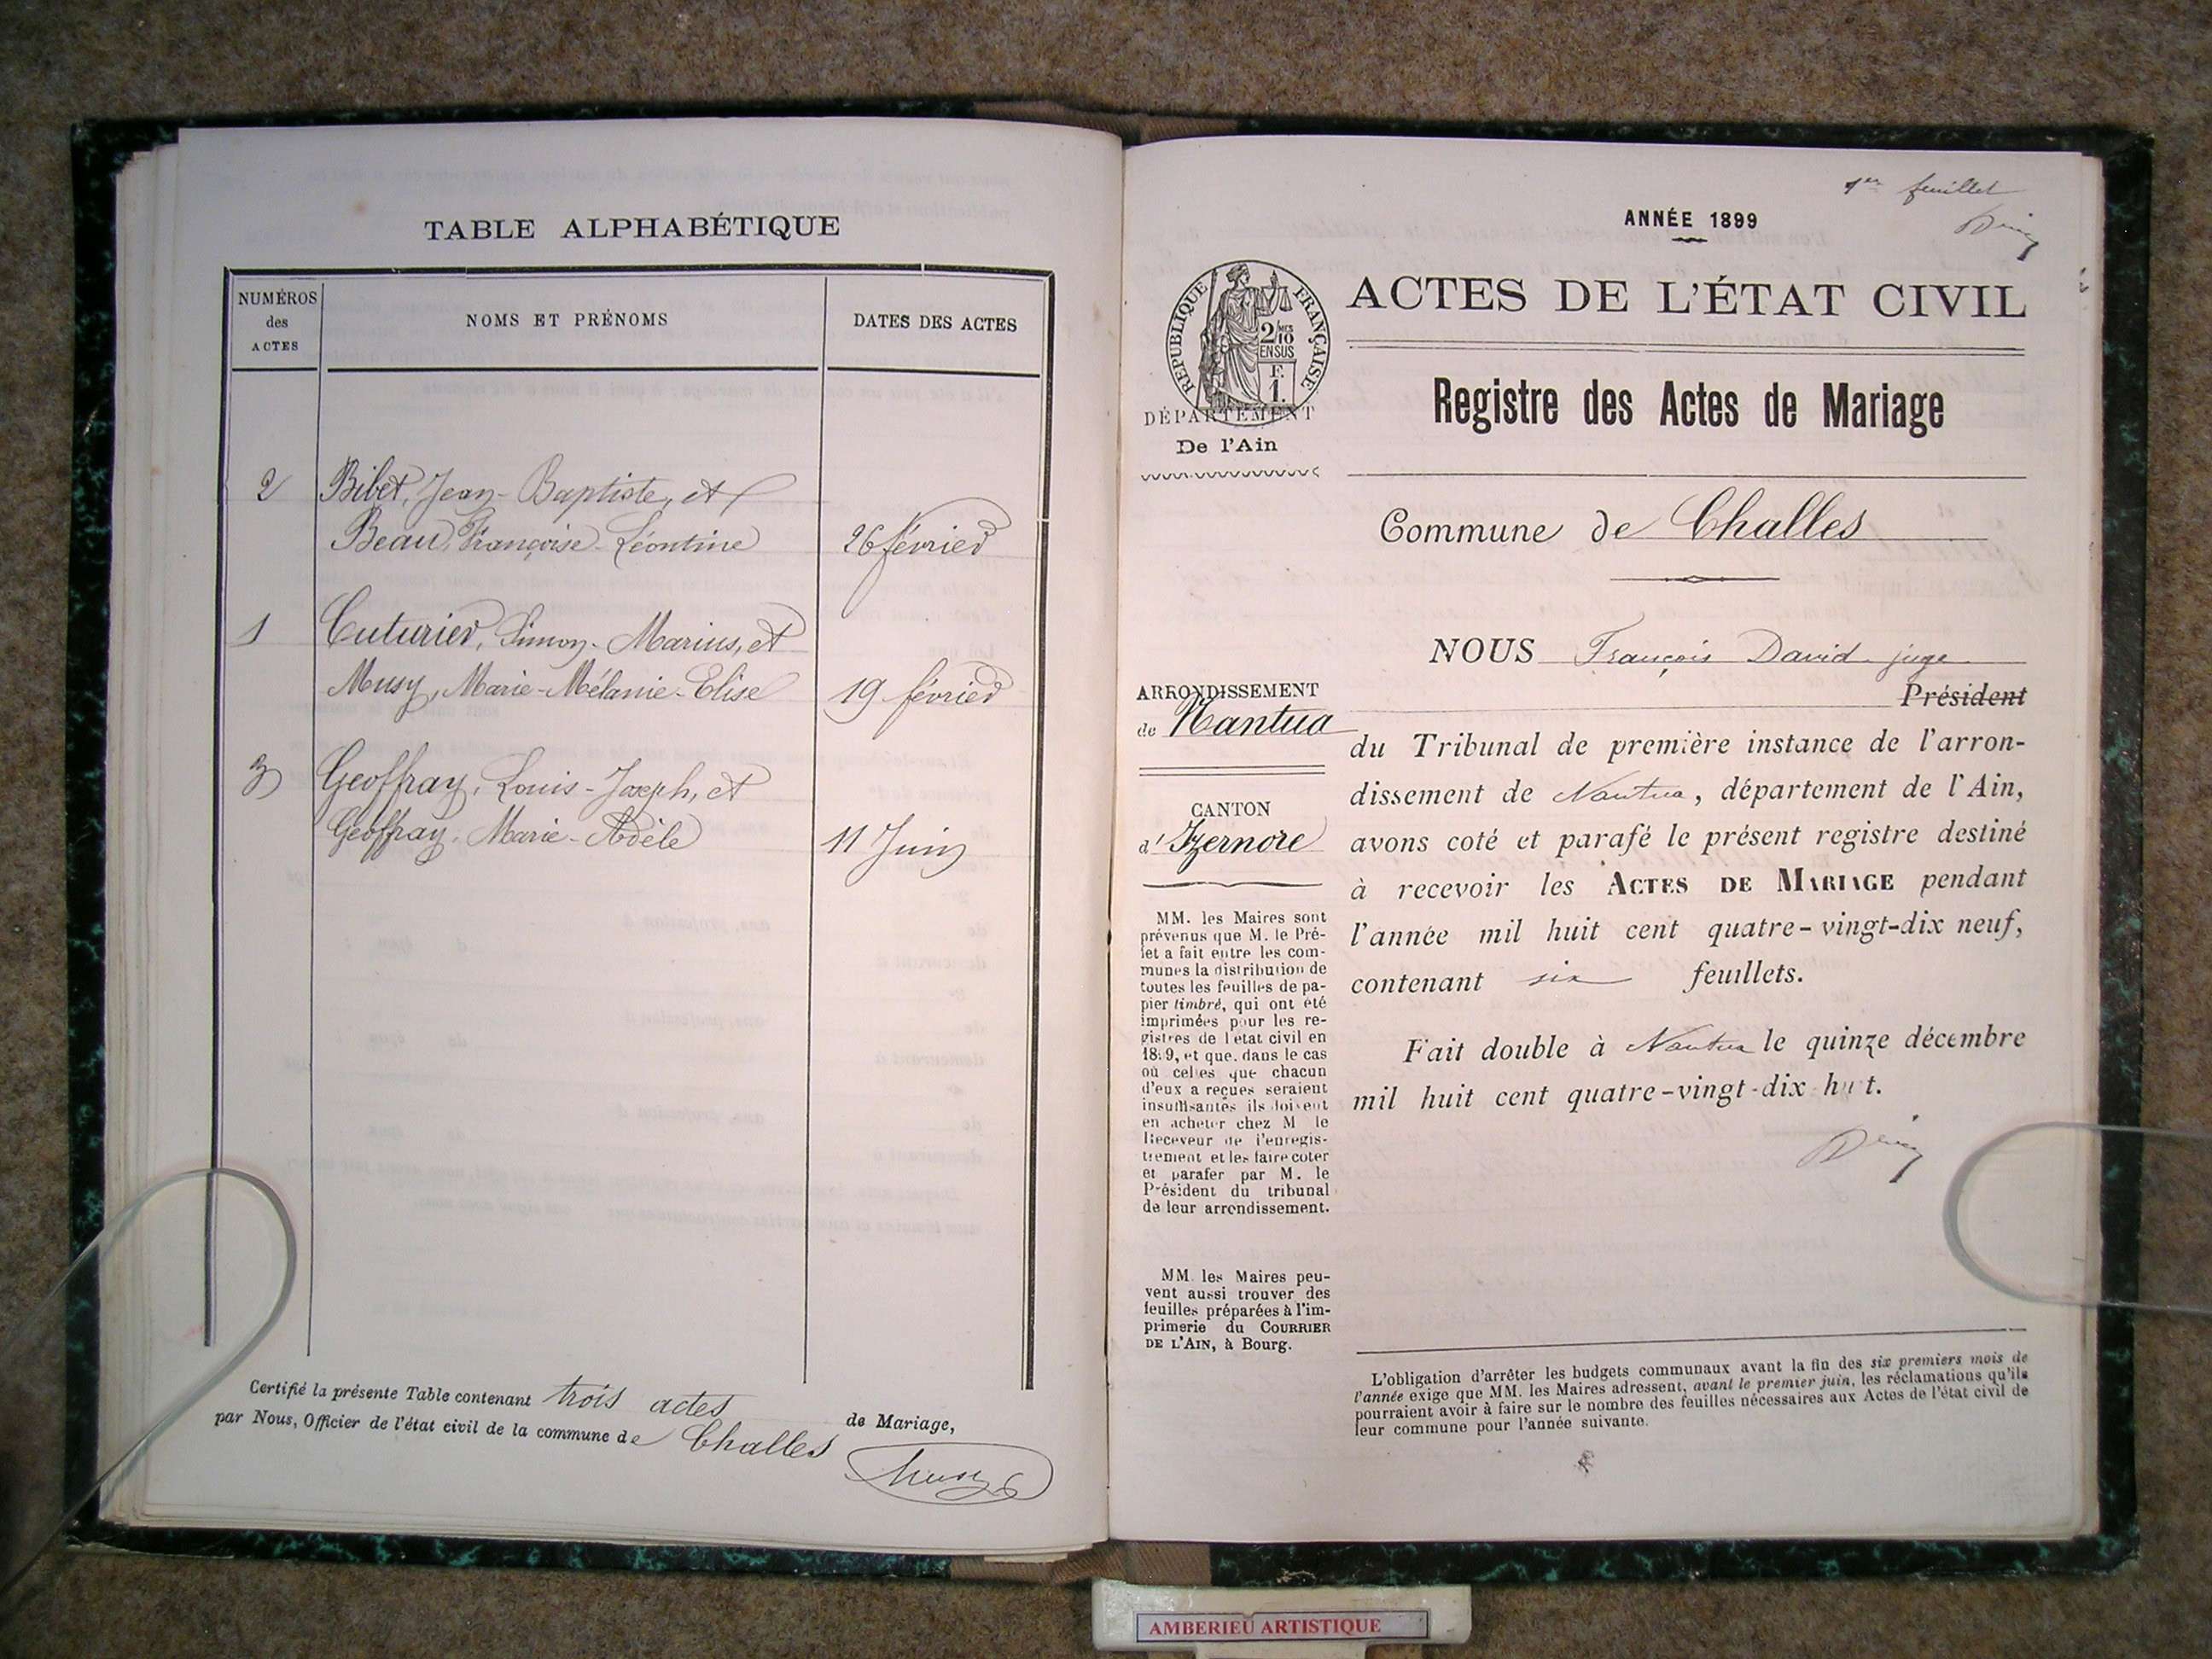 TABLE ALPHABÉTIQUE
NUMÉROS
des
ACTES
NOMS ET PRÉNOMS
DATES DES ACTES
2 Bibet, Jean-Baptiste, et
Beau, Françoise-Léontine 26 février
1 Cuturier, Simon-Marius, et
Musy, Marie-Mélanie-Elise 19 février
3 Geoffray, Louis-Joseph, et
Geoffray, Marie-Adèle 11 Juin
Certifié la présente Table contenant trois actes de Mariage,
par Nous, Officier de l'état civil de la commune de Challes
Musy
1er feuillet
ANNÉE 1899
RÉPUBLIQUE FRANÇAISE
2/10 MES
EN SUS
F.
1.
DÉPARTEMENT
De l'Ain
ACTES DE L'ÉTAT CIVIL
Registre des Actes de Mariage
Commune de Challes
ARRONDISSEMENT
de Nantua
CANTON
d'Izernore
MM. les Maires sont
prévenus que M. le Pré-
fet a fait entre les com-
munes la distribution de
toutes les feuilles de pa-
pier timbré, qui ont été
imprimées pour les re-
gistres de l'état civil en
1899, et que, dans le cas
où celles que chacun
d'eux a reçues seraient
insuffisantes ils doivent
en acheter chez M le
Receveur de l'enregis-
trement et les faire coter
et parafer par M. le
Président du tribunal
de leur arrondissement.
MM. les Maires peu-
vent aussi trouver des
feuilles préparées à l'im-
primerie du COURRIER
DE L'AIN, à Bourg.
NOUS François David juge
Président
du Tribunal de première instance de l'arron-
dissement de Nantua, département de l'Ain,
avons coté et parafé le présent registre destiné
à recevoir les ACTES DE MARIAGE pendant
l'année mil huit cent quatre-vingt-dix neuf,
contenant six feuillets.
Fait double à Nantua le quinze décembre
mil huit cent quatre-vingt-dix huit.
L'obligation d'arrêter les budgets communaux avant la fin des six premiers mois de
l'année exige que MM. les Maires adressent, avant le premier juin, les réclamations qu'ils
pourraient avoir à faire sur le nombre des feuilles nécessaires aux Actes de l'état civil de
leur commune pour l'année suivante.
AMBERIEU ARTISTIQUE